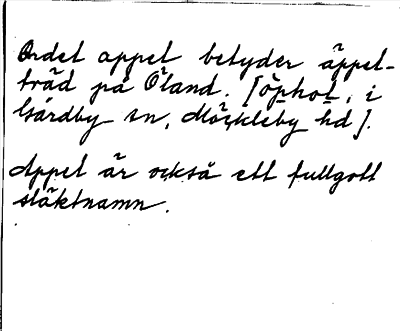 Ordet appel betyder äppel-
träd på Öland. [öphot, i
Gårdby sn, Möckleby hd].
Appel är också ett fullgott
släktnamn.